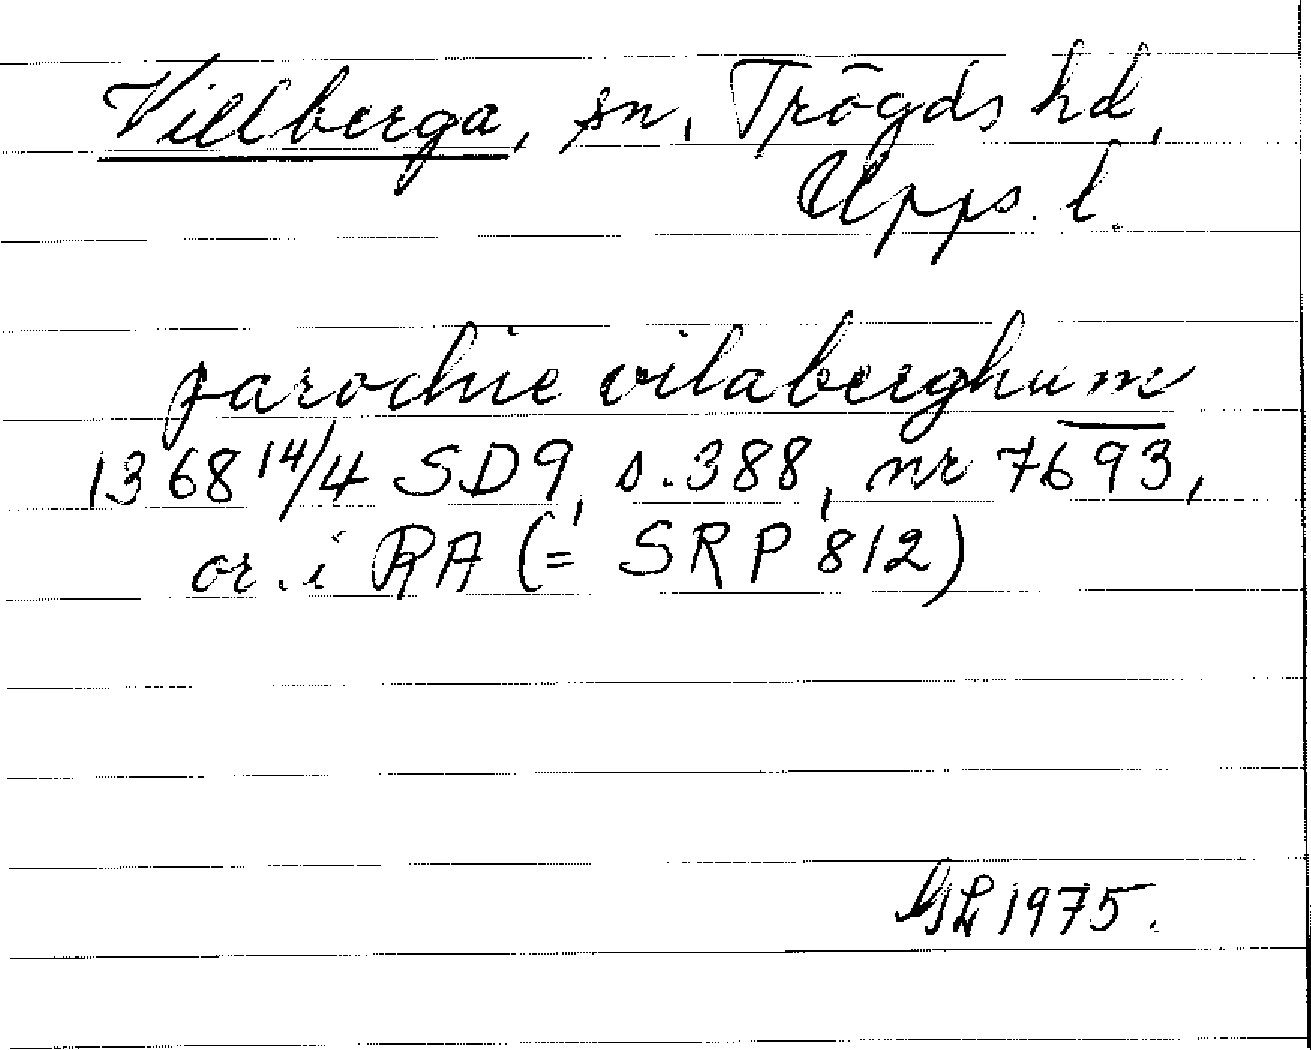 Villberga, sn, Trögds hd,
Upps. l.
parochie vilaberghum
1368 14/4 SD9, s. 388, nr 7693,
or. i RA (= SRP 812)
GL 1975.